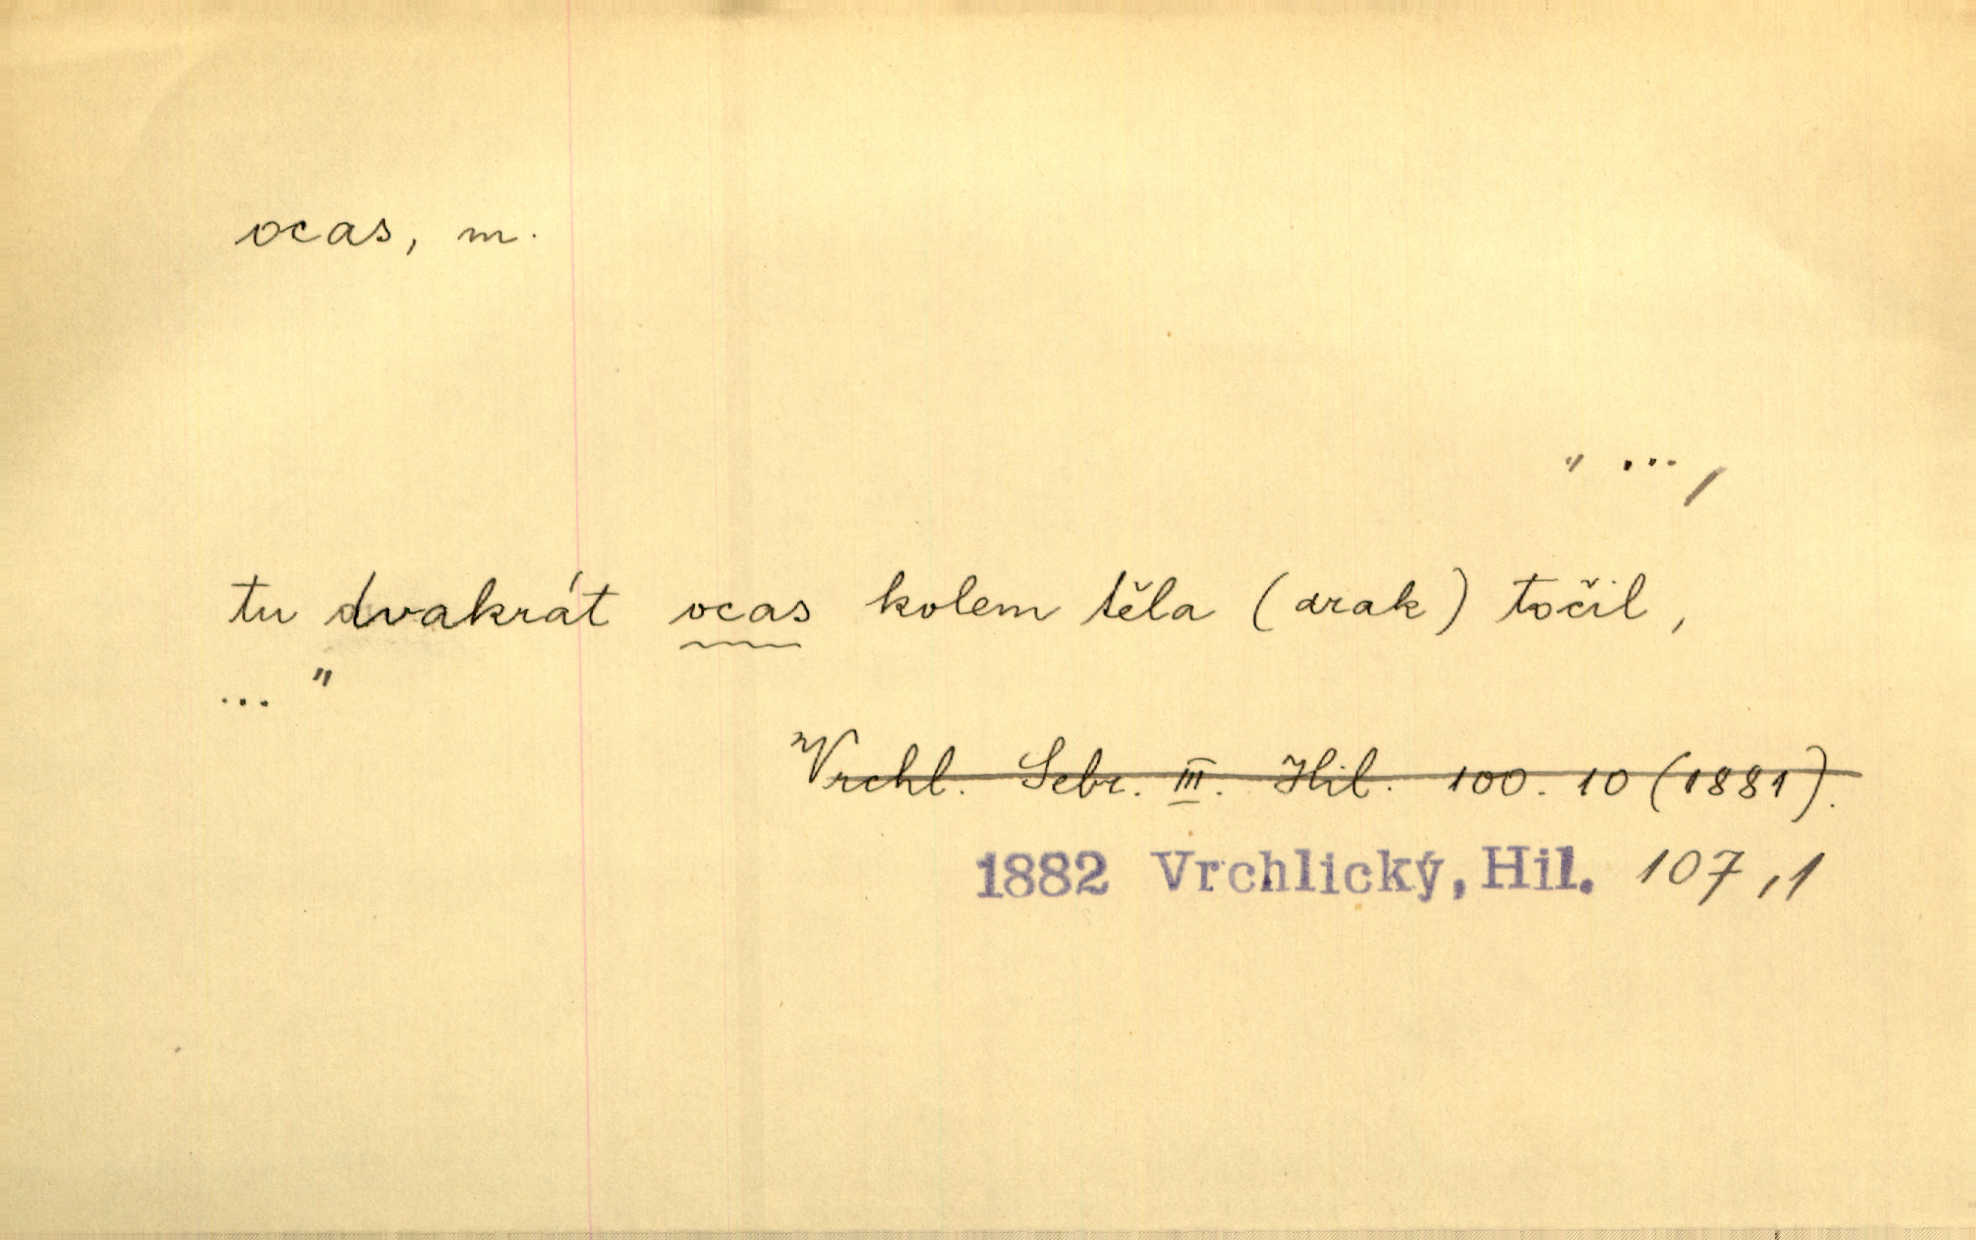 ocas, m.
„ ...,
tu dvakrát ocas kolem těla (drak) točil,
... "
Vrchl. Sebr. III. Hil. 100. 10 (1881).
1882 Vrchlický, Hil. 107,1